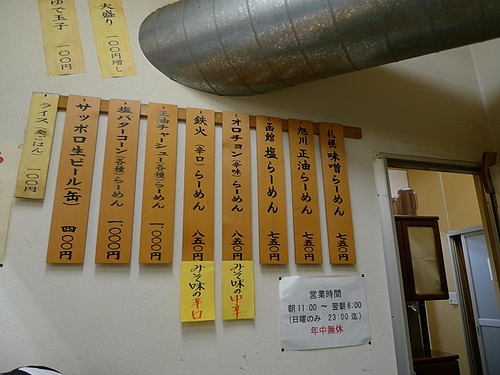 大盛り 一〇〇円増し
ゆで玉子 一〇〇円
札幌 味噌らーめん 七五〇円
旭川 正油らーめん 七五〇円
函館 塩らーめん 七五〇円
オロチョン(辛味)らーめん 八五〇円
みそ味の中辛
鉄火(辛口)らーめん 八五〇円
みそ味の辛口
正油チャーシュー(各種)らーめん 一、〇〇〇円
塩バターコーン(各種)らーめん 一、〇〇〇円
サッポロ生ビール(缶) 四〇〇円
ライス(麦ごはん) 一〇〇円
営業時間
朝11:00 ~ 翌朝6:00
(日曜のみ 23:00迄)
年中無休